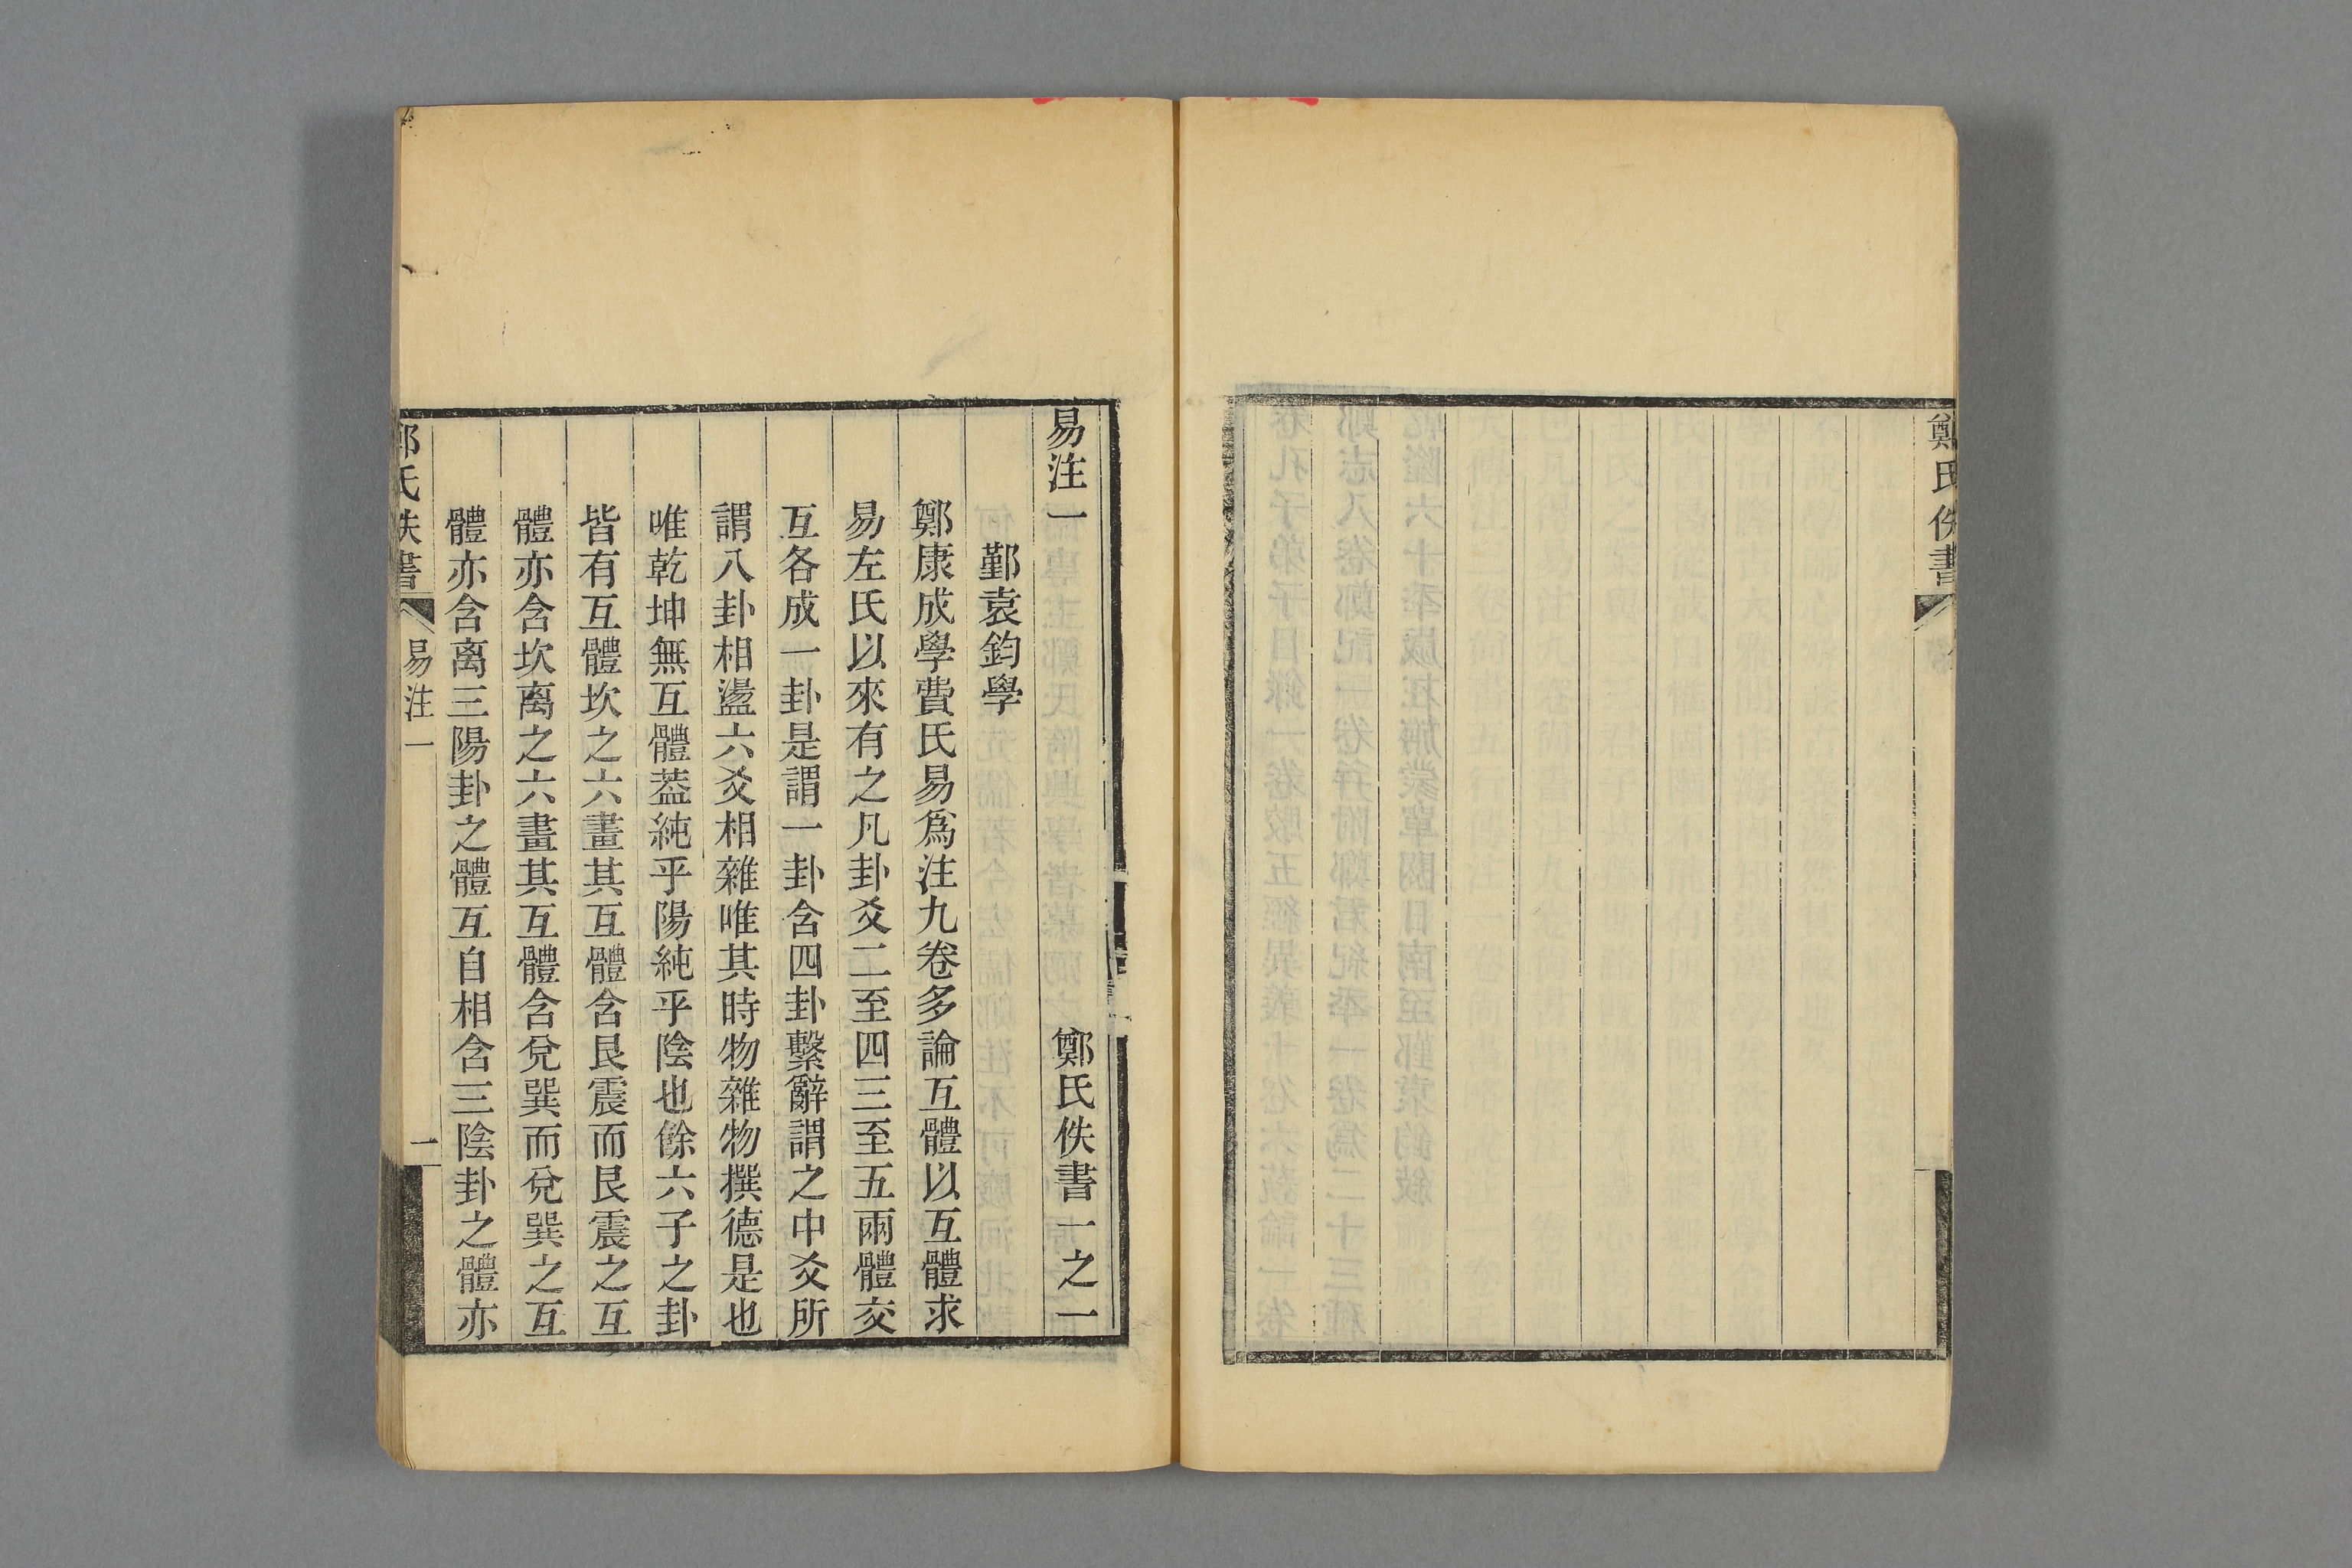 鄭氏佚書
易注一　鄭氏佚書一之一
鄞袁鈞學
鄭康成學費氏易爲注九卷多論互體以互體求
易左氏以來有之凡卦爻二至四三至五兩體交
互各成一卦是謂一卦含四卦繫辭謂之中爻所
謂八卦相盪六爻相雜唯其時物雜物撰德是也
唯乾坤無互體葢純乎陽純乎陰也餘六子之卦
皆有互體坎之六畫其互體含艮震而艮震之互
體亦含坎离之六畫其互體含兌巽而兌巽之互
體亦含离三陽卦之體互自相含三陰卦之體亦
鄭氏佚書　易注一　一